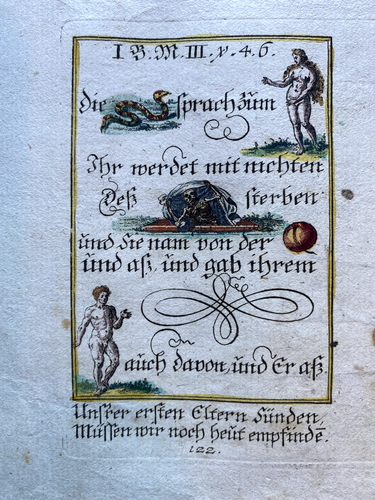 I B. M. III. v. 4. 6.
Die sprach zum
Ihr werdet mit nichten
Deß sterben
und Sie nam von der
und aß, und gab ihrem
auch davon, und Er aß.
Unsver ersten Eltern Sünden,
Müssen wir noch heut empfindē.
122.